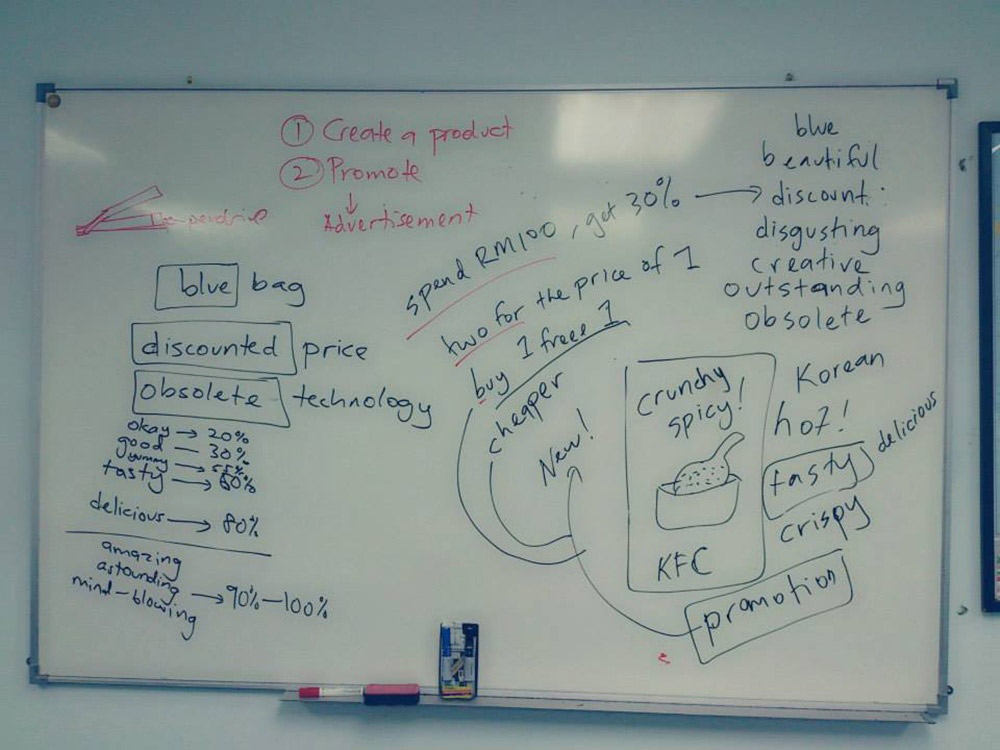 ① Create a product
② Promote
↓
Advertisement
pendrive
blue bag
discounted price
obsolete technology
okay → 20%
good — 30%
yummy → 55%
tasty → 60%
delicious → 80%
amazing
astounding
mind-blowing → 90%—100%
spend RM100, get 30% →
two for the price of 1
buy 1 freee 1
cheaper
New!
crunchy
spicy!
KFC
blue
beautiful
discount
disgusting
creative
outstanding
obsolete
Korean
hot!
tasty delicious
crispy
promotion